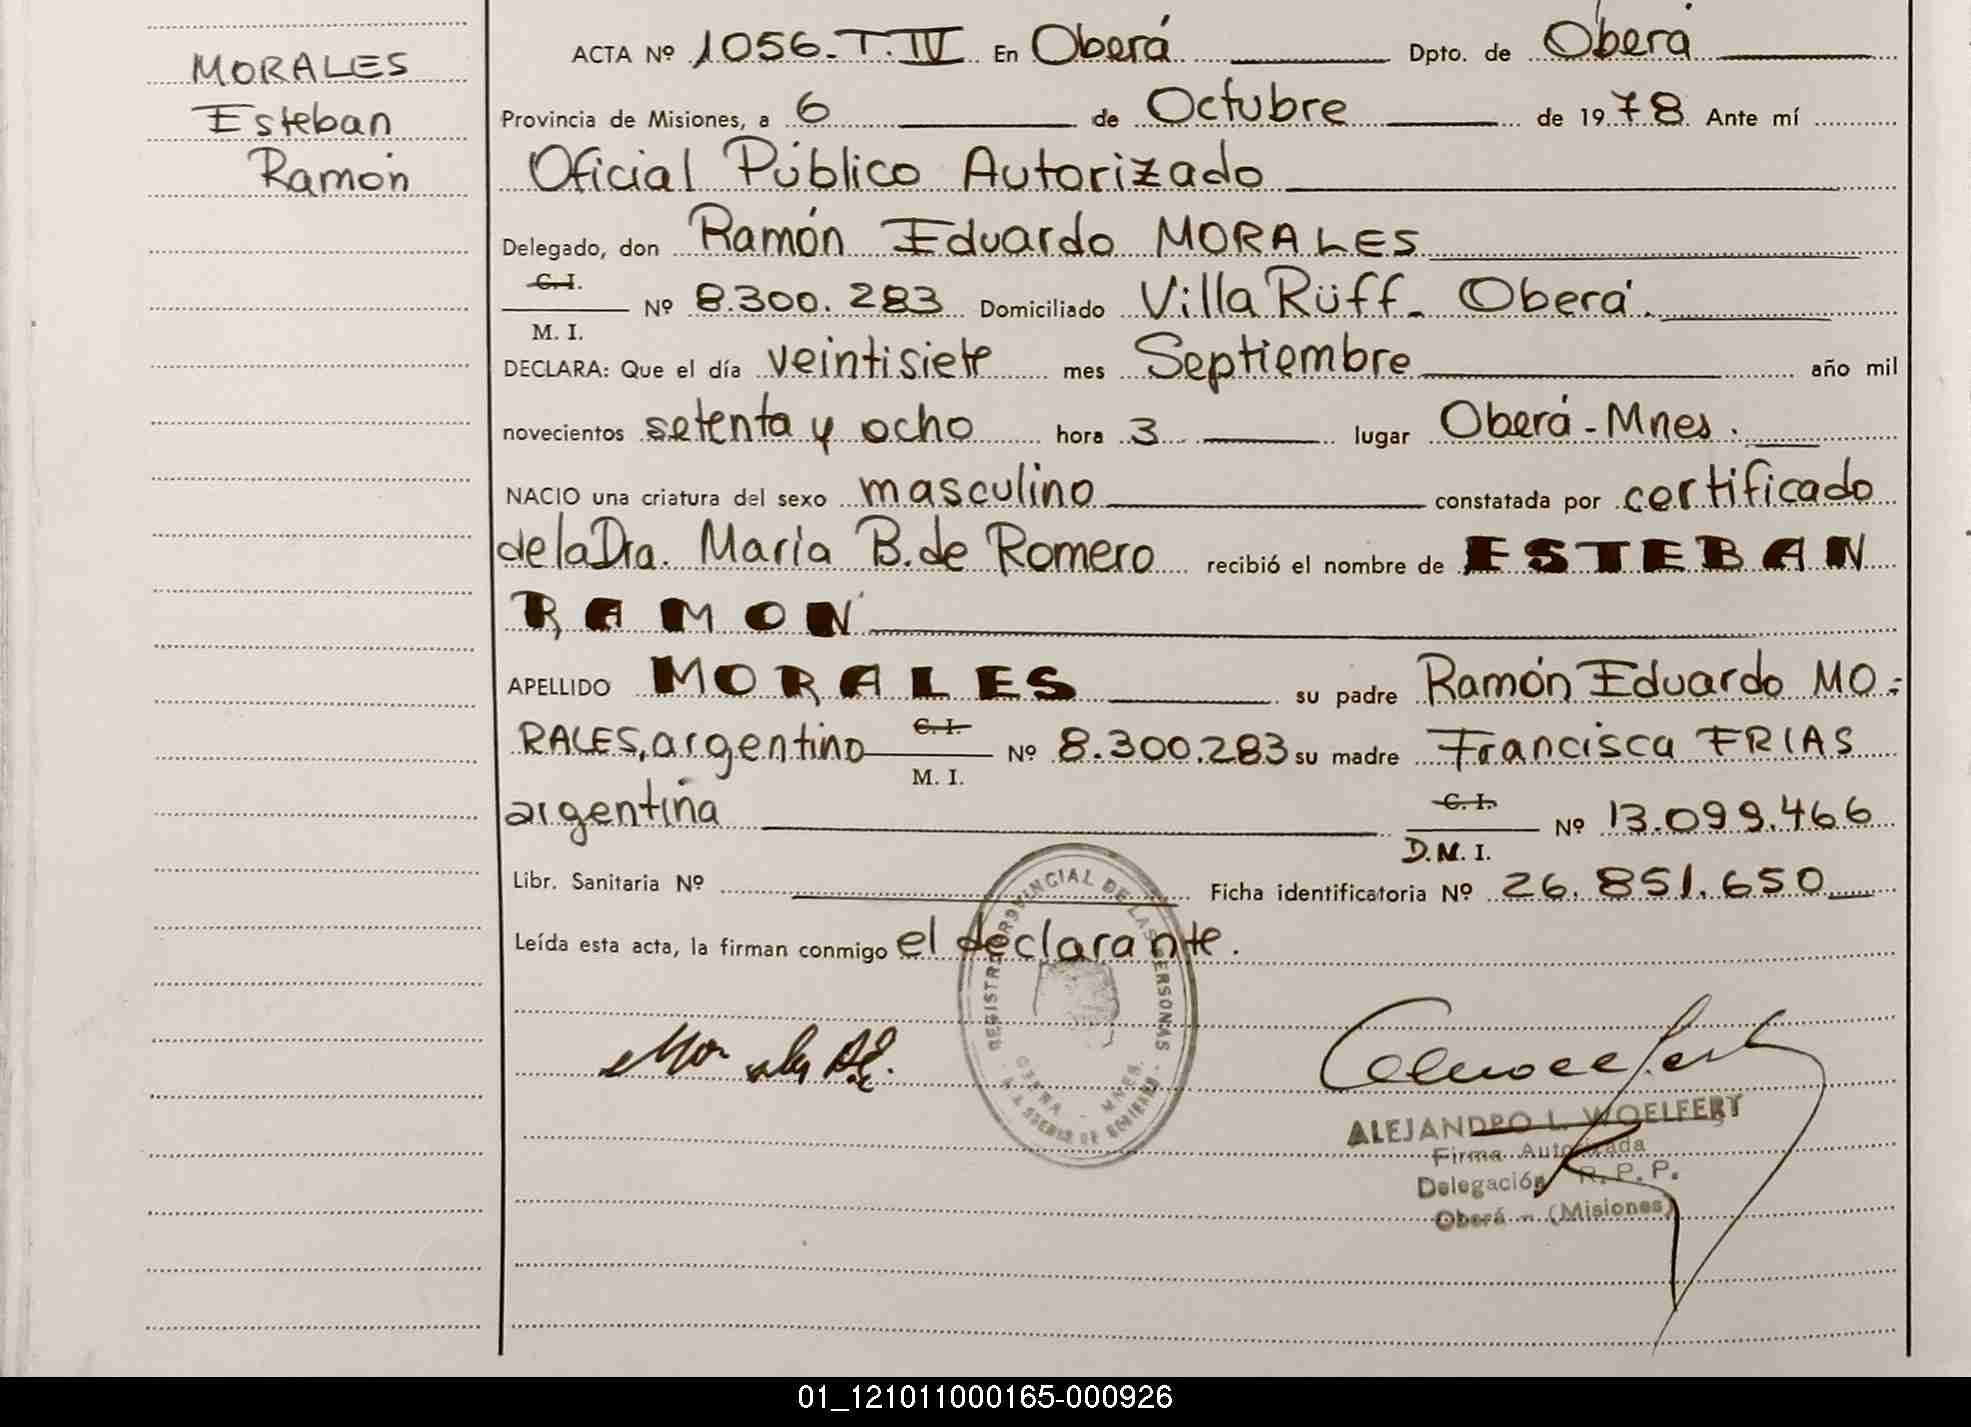 MORALES
Esteban
Ramón
ACTA Nº 1056-T.IV En Oberá Dpto. de Oberá
Provincia de Misiones, a 6 de Octubre de 1978 Ante mí
Oficial Público Autorizado
Delegado, don Ramón Eduardo MORALES
C.I.
M. I.
Nº 8.300.283 Domiciliado Villa Rüff- Oberá.
DECLARA: Que el día veintisiete mes Septiembre año mil
novecientos setenta y ocho hora 3 lugar Oberá-Mnes.
NACIO una criatura del sexo masculino constatada por certificado
de la Dra. María B. de Romero recibió el nombre de ESTEBAN
RAMON
APELLIDO MORALES su padre Ramón Eduardo MO-
RALES, argentino C.I. M. I. Nº 8.300.283 su madre Francisca FRIAS
argentina C.I. D.M.I. Nº 13.099.466
Libr. Sanitaria Nº Ficha identificatoria Nº 26.851.650
Leída esta acta, la firman conmigo el declarante.
REGISTRO PROVINCIAL DE LAS PERSONAS
OBERA - MNES.
ALEJANDRO L. WOELFERT
Firma Autorizada
Delegación R. P. P.
Oberá - (Misiones)
01_121011000165-000926